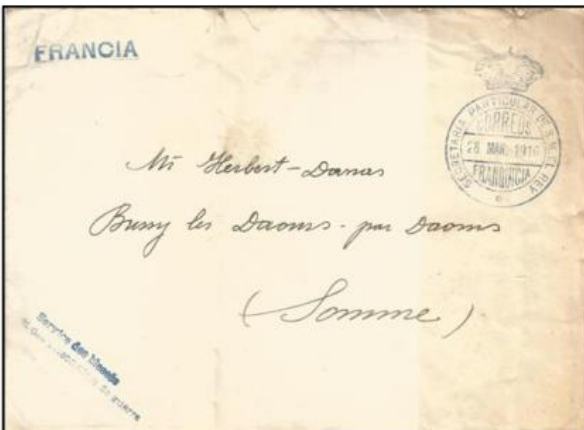 FRANCIA
SECRETARIA PARTICULAR DE S.M. EL REY
CORREOS
28 MAR. 1916
FRANQUICIA
Mr Herbert-Damas
Bussy les Daours - par Daours
(Somme)
Service des blessés
de guerre